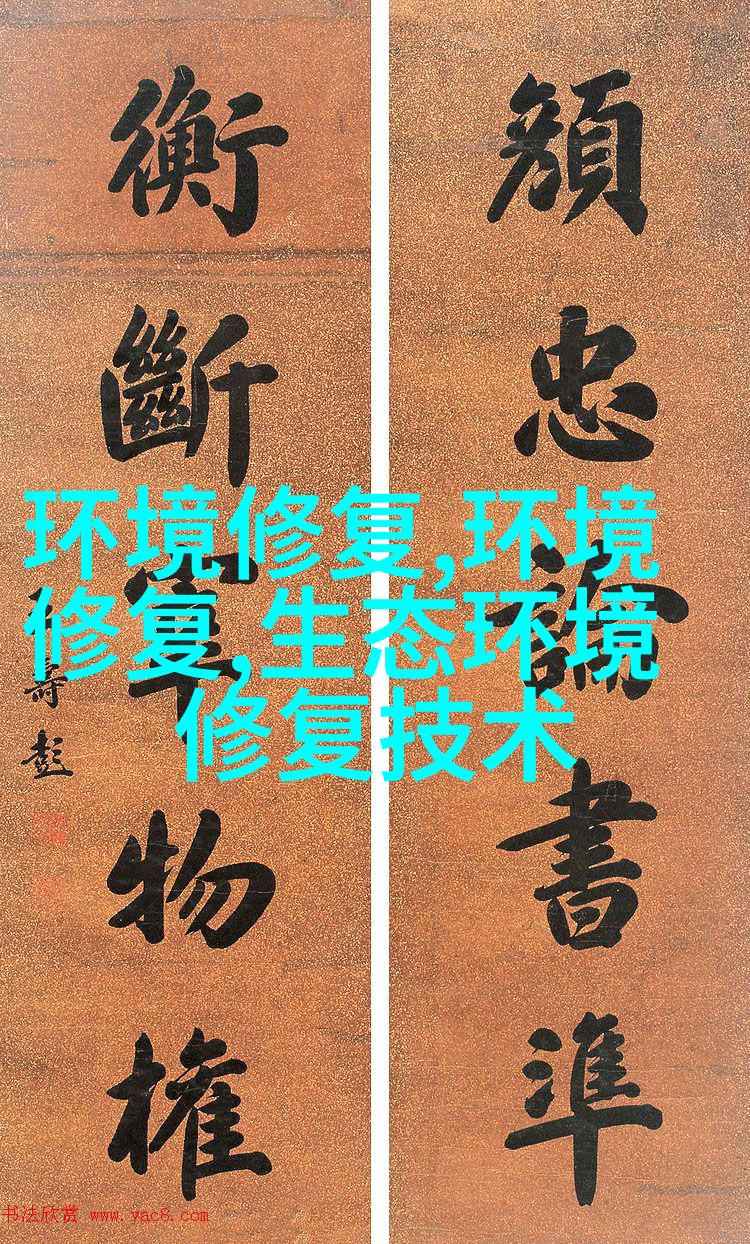 忠論書準
衡斷物權
壽彭
环境修复,环境
修复,生态环境
修复技术
书法欣赏 www.yac8.com